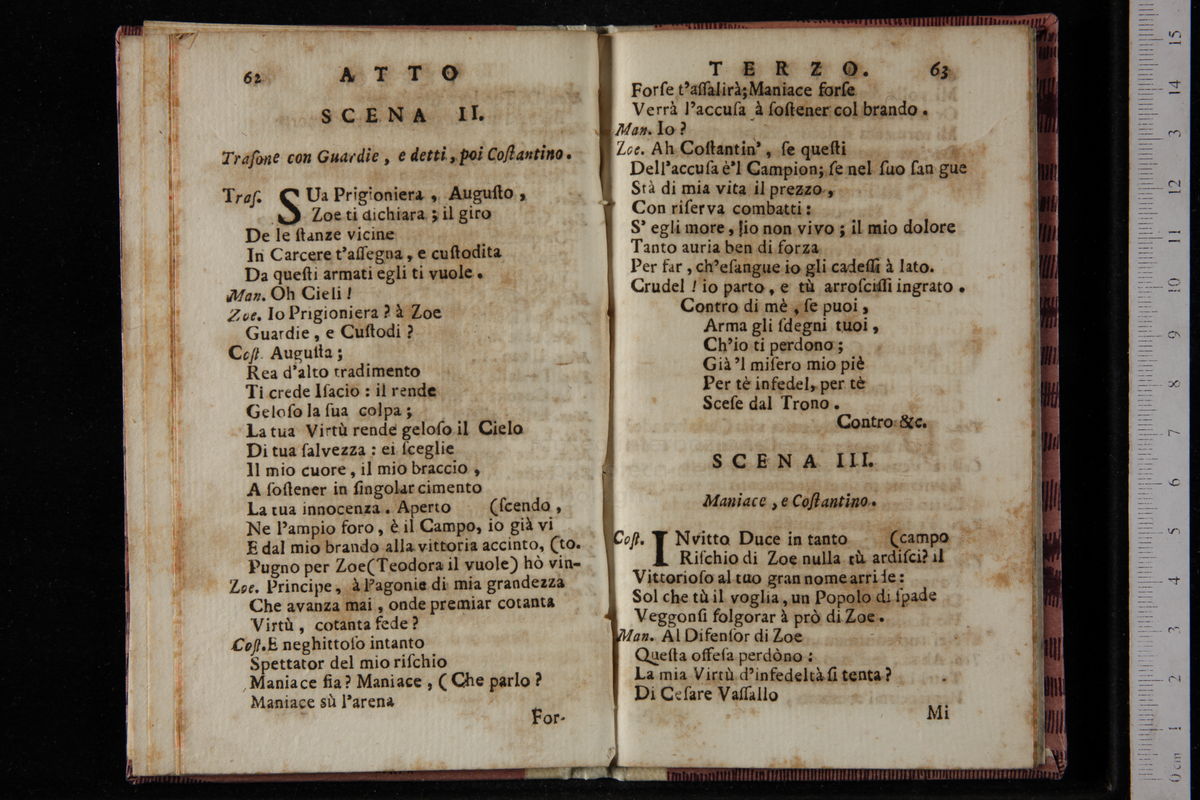 62 ATTO
SCENA II.
Traſone con Guardie, e detti, poi Coſtantino.
Traſ. SUa Prigioniera, Auguſto,
Zoe ti dichiara; il giro
De le ſtanze vicine
In Carcere t'aſſegna, e cuſtodita
Da queſti armati egli ti vuole.
Man. Oh Cieli!
Zoe. Io Prigioniera? à Zoe
Guardie, e Cuſtodi?
Coſt. Auguſta;
Rea d'alto tradimento
Ti crede Iſacio: il rende
Geloſo la ſua colpa;
La tua Virtù rende geloſo il Cielo
Di tua ſalvezza: ei ſceglie
Il mio cuore, il mio braccio,
A ſoſtener in ſingolar cimento
La tua innocenza. Aperto (ſcendo,
Ne l'ampio foro, è il Campo, io già vi
E dal mio brando alla vittoria accinto, (to.
Pugno per Zoe(Teodora il vuole) hò vin-
Zoe. Principe, à l'agonie di mia grandezza
Che avanza mai, onde premiar cotanta
Virtù, cotanta fede?
Coſt. E neghittoſo intanto
Spettator del mio riſchio
Maniace fia? Maniace, (Che parlo?
Maniace sù l'arena
For-
TERZO. 63
Forſe t'aſſalirà; Maniace forſe
Verrà l'accuſa à ſoſtener col brando.
Man. Io?
Zoe. Ah Coſtantin', ſe queſti
Dell'accuſa è'l Campion; ſe nel ſuo ſan gue
Stà di mia vita il prezzo,
Con riſerva combatti:
S' egli more, ſio non vivo; il mio dolore
Tanto auria ben di forza
Per far, ch'eſangue io gli cadeſſi à lato.
Crudel! io parto, e tù arroſciſſi ingrato.
Contro di mè, ſe puoi,
Arma gli ſdegni tuoi,
Ch'io ti perdono;
Già 'l miſero mio piè
Per tè infedel, per tè
Sceſe dal Trono.
Contro &c.
SCENA III.
Maniace, e Coſtantino.
Coſt. INvitto Duce in tanto (campo
Riſchio di Zoe nulla tù ardiſci? il
Vittorioſo al tuo gran nome arriſe:
Sol che tù il voglia, un Popolo di ſpade
Veggonſi folgorar à prò di Zoe.
Man. Al Difenſor di Zoe
Queſta offeſa perdòno:
La mia Virtù d'infedeltà ſi tenta?
Di Ceſare Vaſſallo
Mi
0 cm 1 2 3 4 5 6 7 8 9 10 11 12 13 14 15